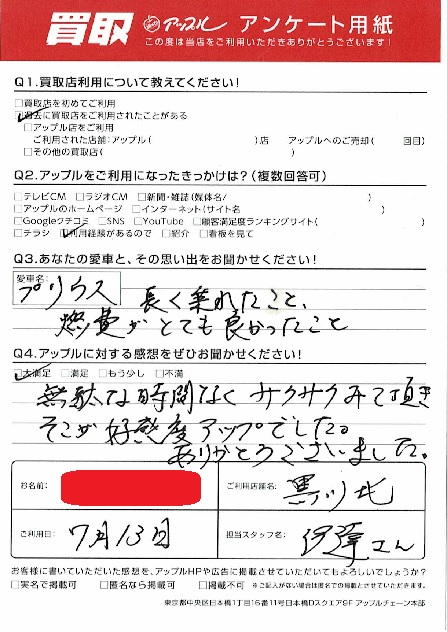 買取 アップル アンケート用紙
この度は当店をご利用いただきありがとうございます!
Q1.買取店利用について教えてください!
□買取店を初めてご利用
☑過去に買取店をご利用されたことがある
□アップル店をご利用
ご利用された店舗:アップル( )店 アップルへのご売却( 回目)
□その他の買取店( )
Q2.アップルをご利用になったきっかけは?(複数回答可)
□テレビCM □ラジオCM □新聞・雑誌(媒体名/ )
□アップルのホームページ □インターネット(サイト名 )
□Googleクチコミ □SNS □YouTube □顧客満足度ランキングサイト( )
□チラシ ☑利用経験があるので □紹介 □看板を見て
Q3.あなたの愛車と、その思い出をお聞かせください!
愛車名:
プリウス 長く乗れたこと、
燃費がとても良かったこと
Q4.アップルに対する感想をぜひお聞かせください!
☑大満足 □満足 □もう少し □不満
無駄な時間なくサクサクみて頂き
そこが好感度アップでした。
ありがとうございました。
お名前: ご利用店舗名: 黒川北
ご利用日: 7月13日 担当スタッフ名: 伊達さん
お客様に書いていただいた感想を、アップルHPや広告に掲載させていただいてもよろしいでしょうか?
□実名で掲載可 □匿名なら掲載可 □掲載不可 ※ご記入がない場合は匿名での掲載とさせていただきます。
東京都中央区日本橋1丁目16番11号日本橋Dスクエア9F アップルチェーン本部